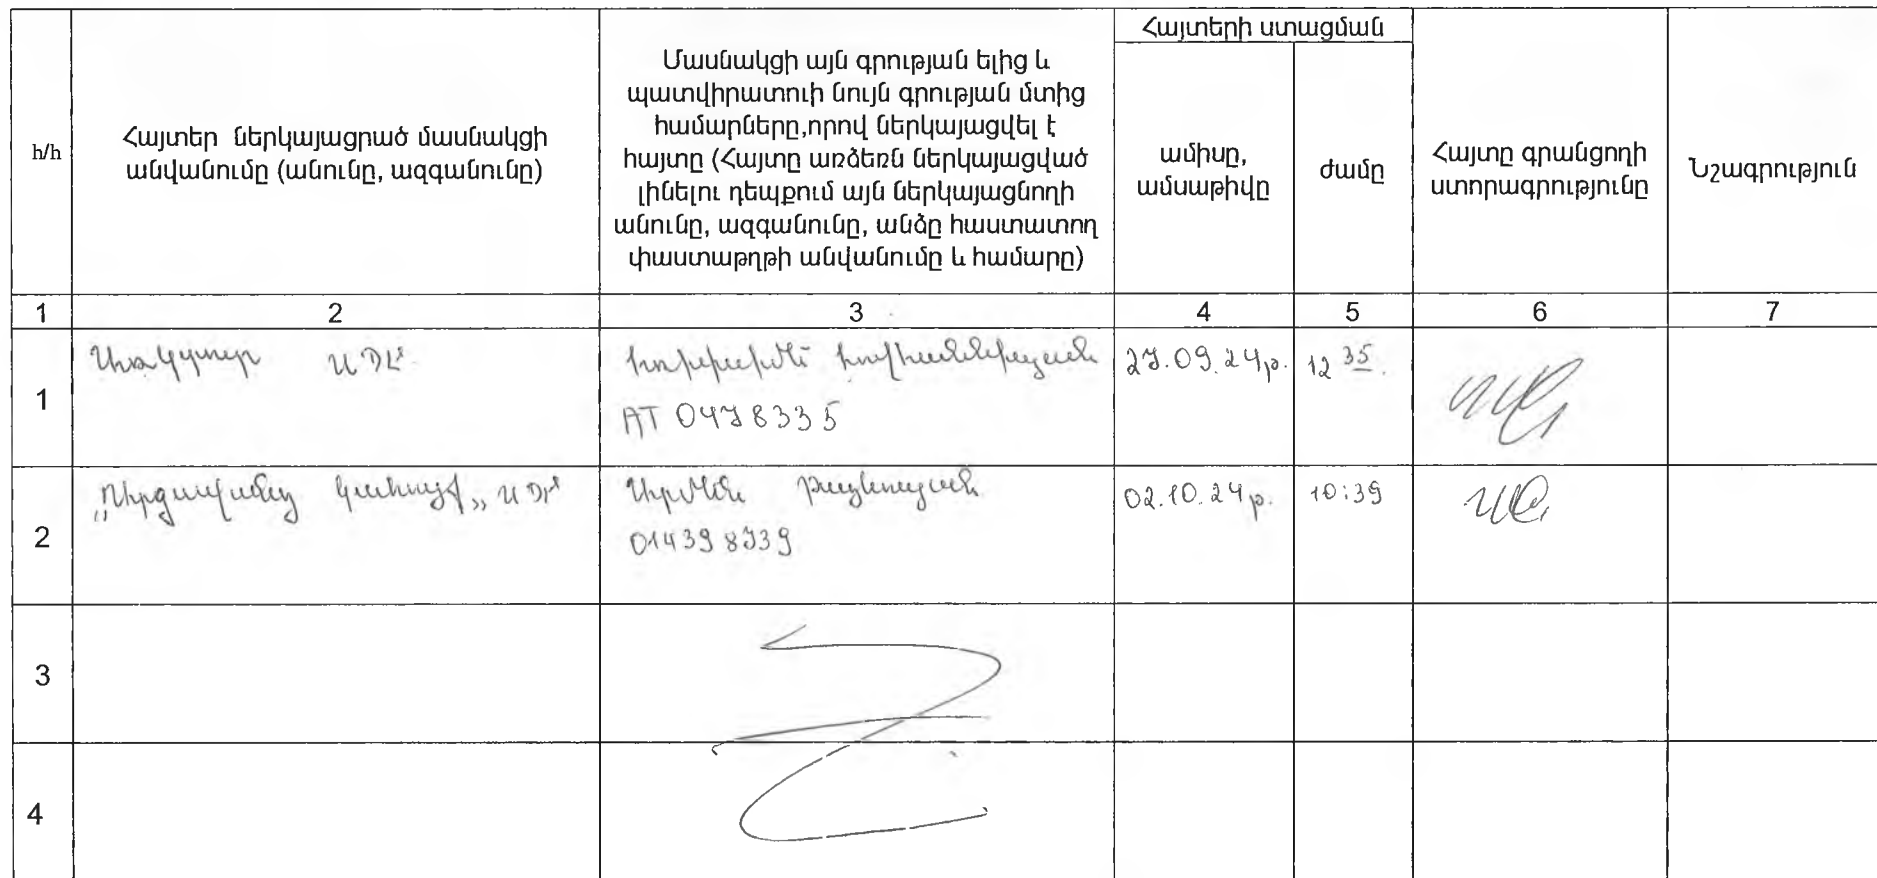 հ/հ
Հայտեր ներկայացրած մասնակցի
անվանումը (անունը, ազգանունը)
Մասնակցի այն գրության ելից և
պատվիրատուի նույն գրության մտից
համարները,որով ներկայացվել է
հայտը (Հայտը առձեռն ներկայացված
լինելու դեպքում այն ներկայացնողի
անունը, ազգանունը, անձը հաստատող
փաստաթղթի անվանումը և համարը)
Հայտերի ստացման
ամիսը,
ամսաթիվը
ժամը
Հայտը գրանցողի
ստորագրությունը
Նշագրություն
1 2 3 4 5 6 7
1
ՍՊԸ
AT 0478335
27.09.24թ.
12 35.
2
ՍՊԸ
Արմեն
014398739
02.10.24թ.
10:39
3
4